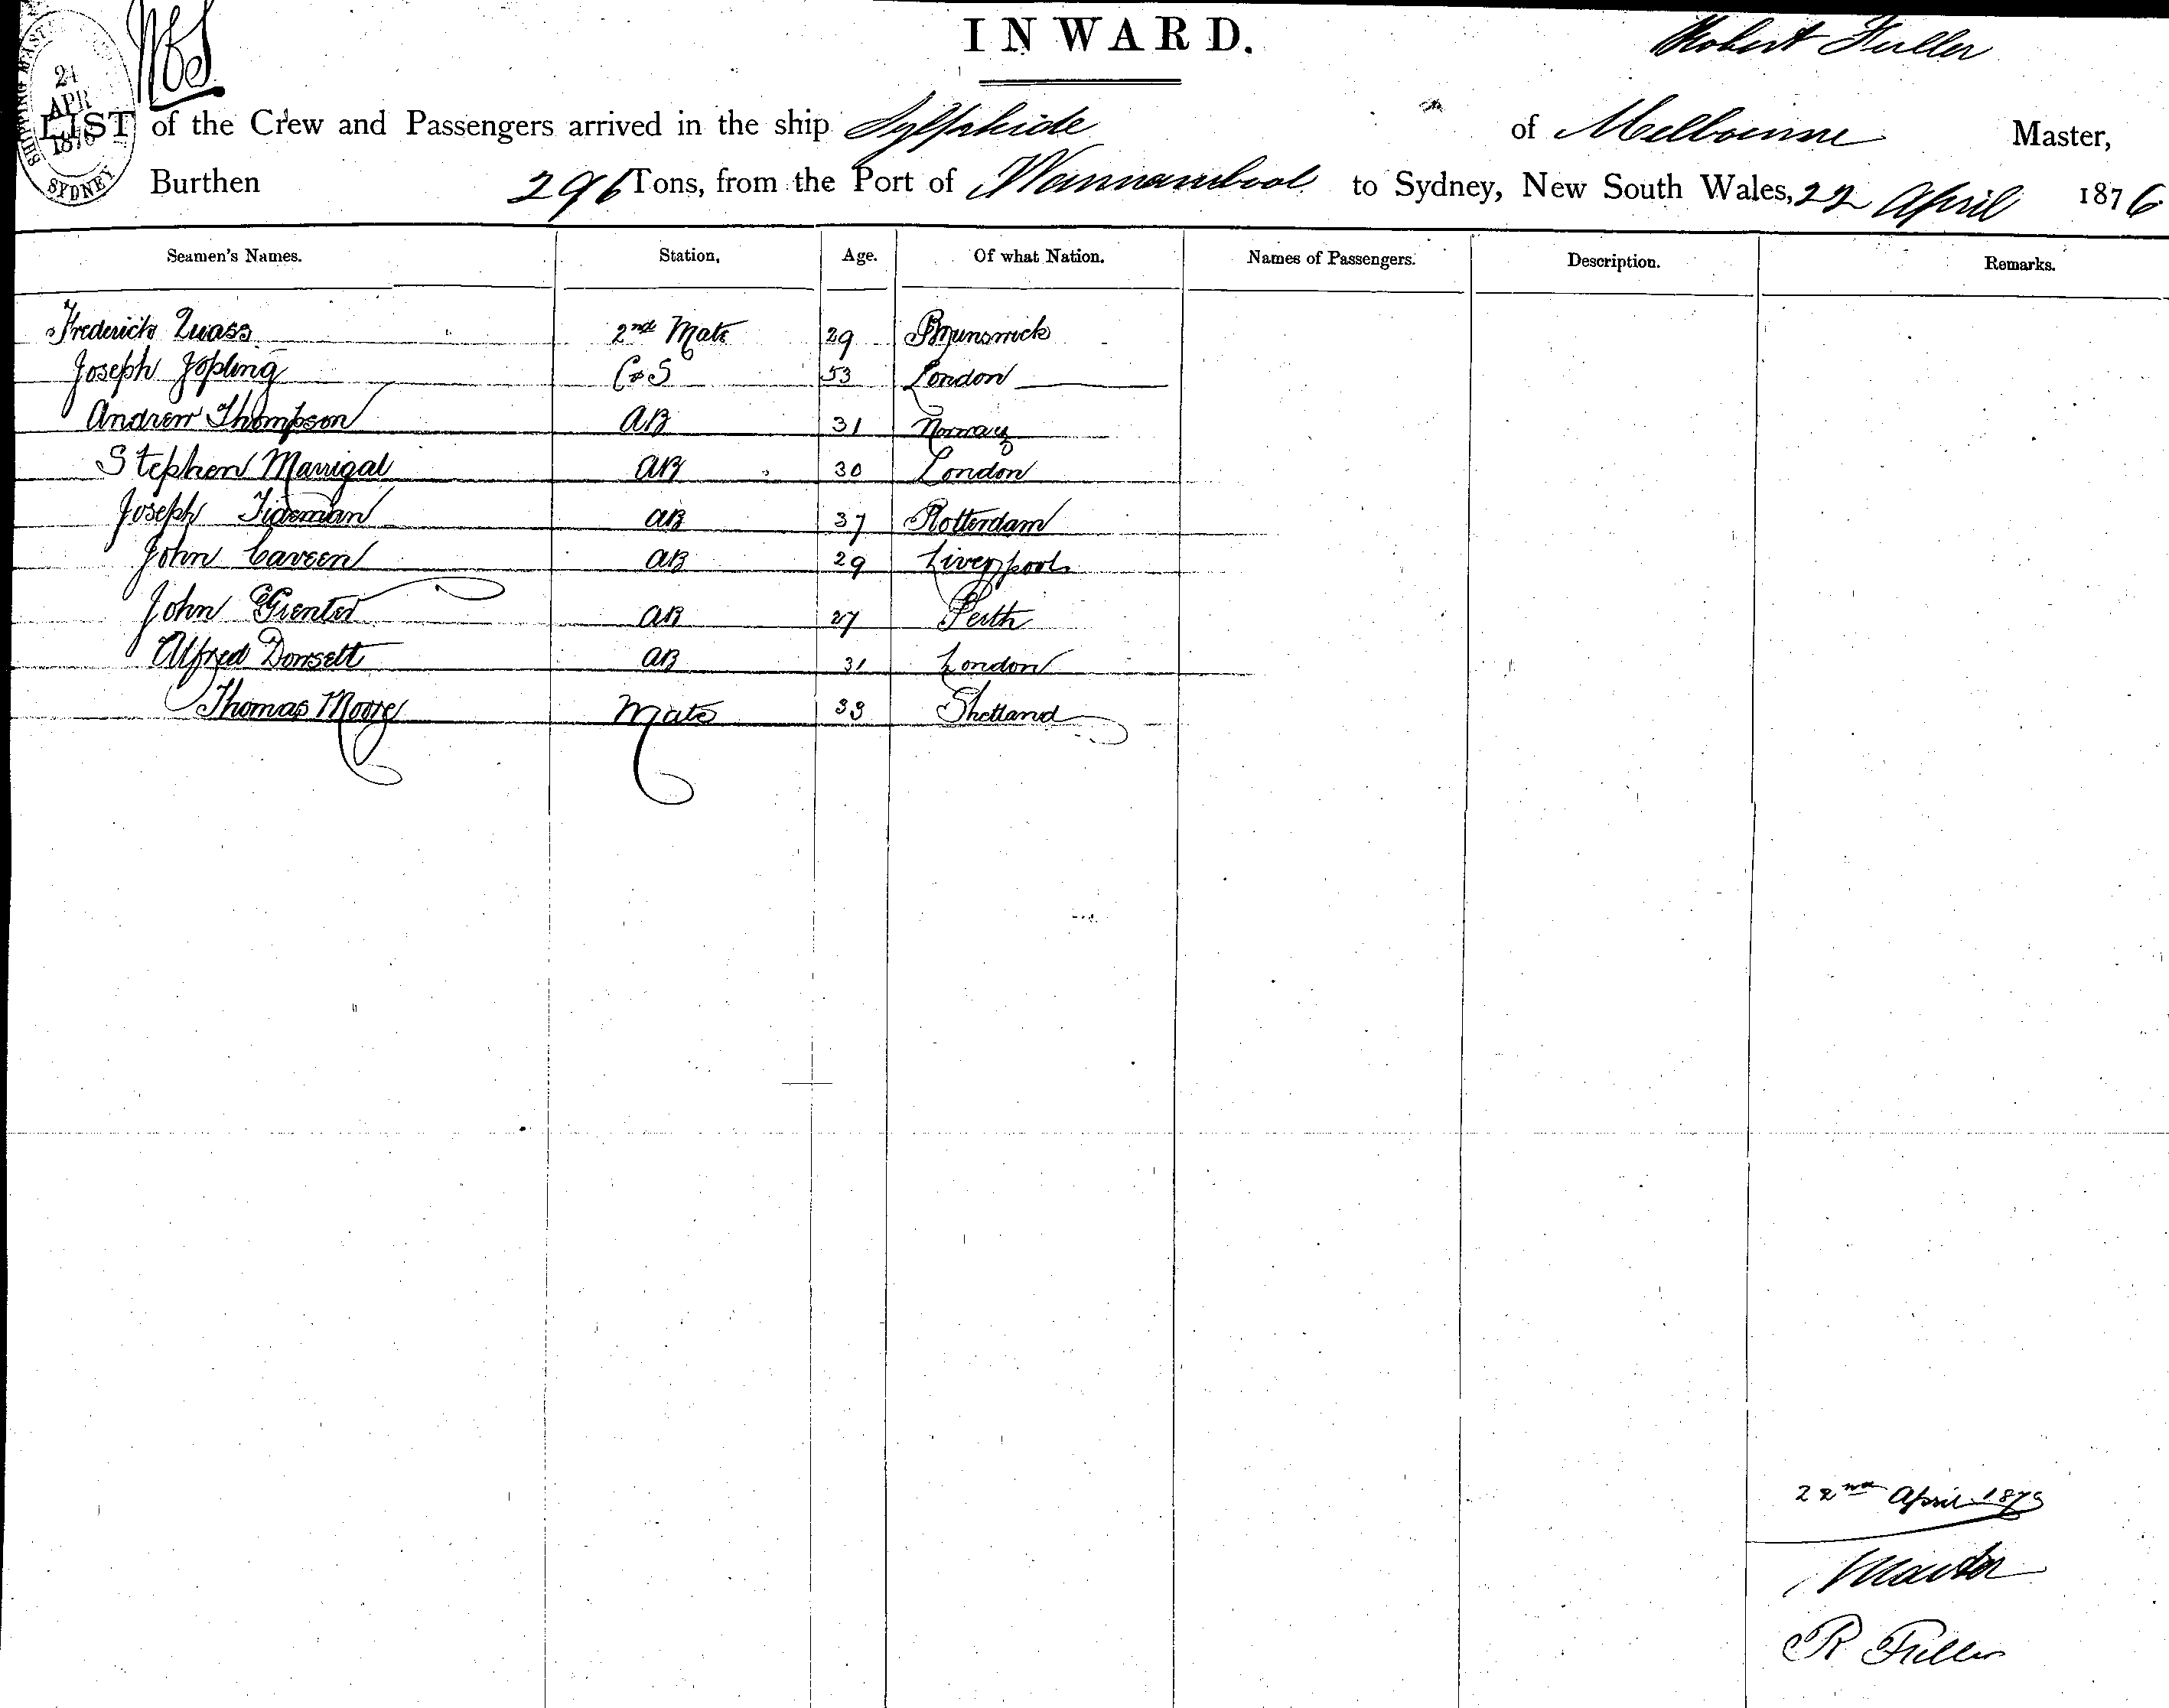 INWARD.
Robert Fuller
SHIPPING MAST
24
APR
1876
SYDNEY
LIST of the Crew and Passengers arrived in the ship Sylphide of Melbourne Master,
Burthen 296 Tons, from the Port of Warrnambool to Sydney, New South Wales, 22 April 1876
Seamen's Names. Station. Age. Of what Nation. Names of Passengers. Description. Remarks.
Frederick Quass 2nd Mate 29 Brunswick
Joseph Jopling C&S 53 London
Andrew Thompson AB 31 Norway
Stephen Marrigal AB 30 London
Joseph Tideman AB 37 Rotterdam
John Caveen AB 29 Liverpool
John Grenter AB 27 Perth
Alfred Dorsett AB 31 London
Thomas Moore Mate 33 Shetland
22nd April 1876
Master
R Fuller